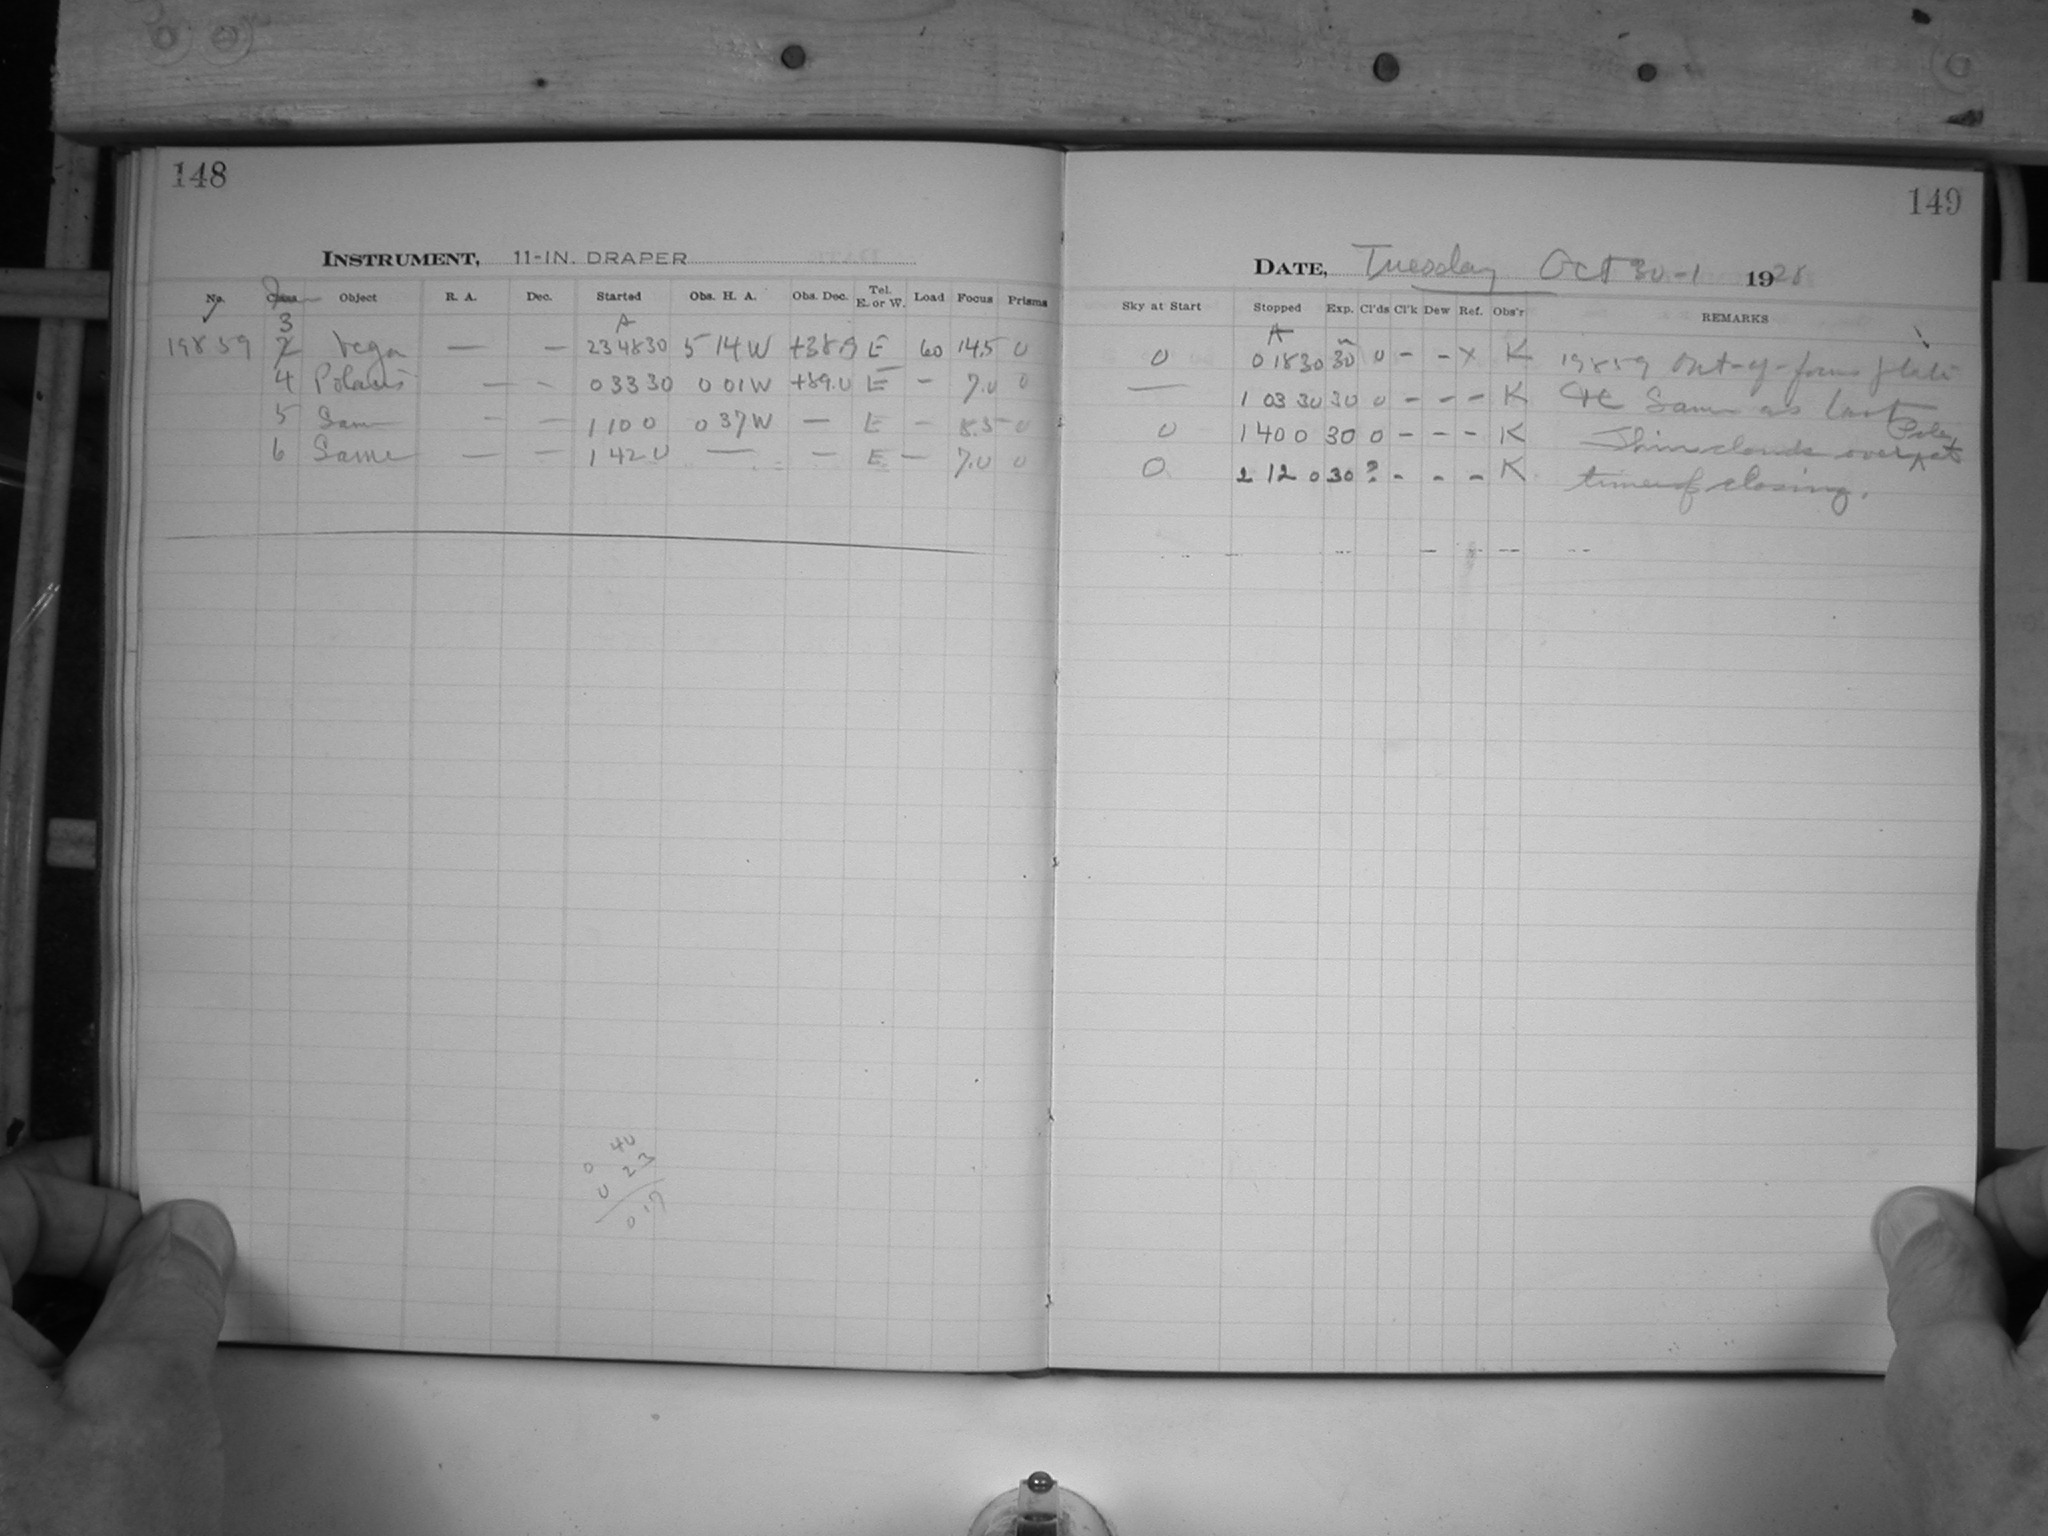 148
INSTRUMENT, 11-IN. DRAPER
No. Class Object R. A. Dec. Started Obs. H. A. Obs. Dec. Tel. E. or W. Load Focus Prisms
3 A
19859 2 Vega — — 23 48 30 5 14 W +38.9 E 60 14.5 0
4 Polaris — — 0 33 30 0 01 W +89.0 E — 7.0 0
5 Same — — 1 10 0 0 37 W — E — 8.5 0
6 Same — — 1 42 0 — — E — 7.0 0
0 40
0 23
0 17
149
DATE, Tuesday Oct 30-1 1928
Sky at Start Stopped Exp. Cl'ds Cl'k Dew Ref. Obs'r REMARKS
A m
0 0 18 30 30 0 - - x K 19859 Out-of-focus plate
— 1 03 30 30 0 - - - K Same as last
0 1 40 0 30 0 - - - K Thin clouds over Pole at
0 2 12 0 30 ? - - - K time of closing.